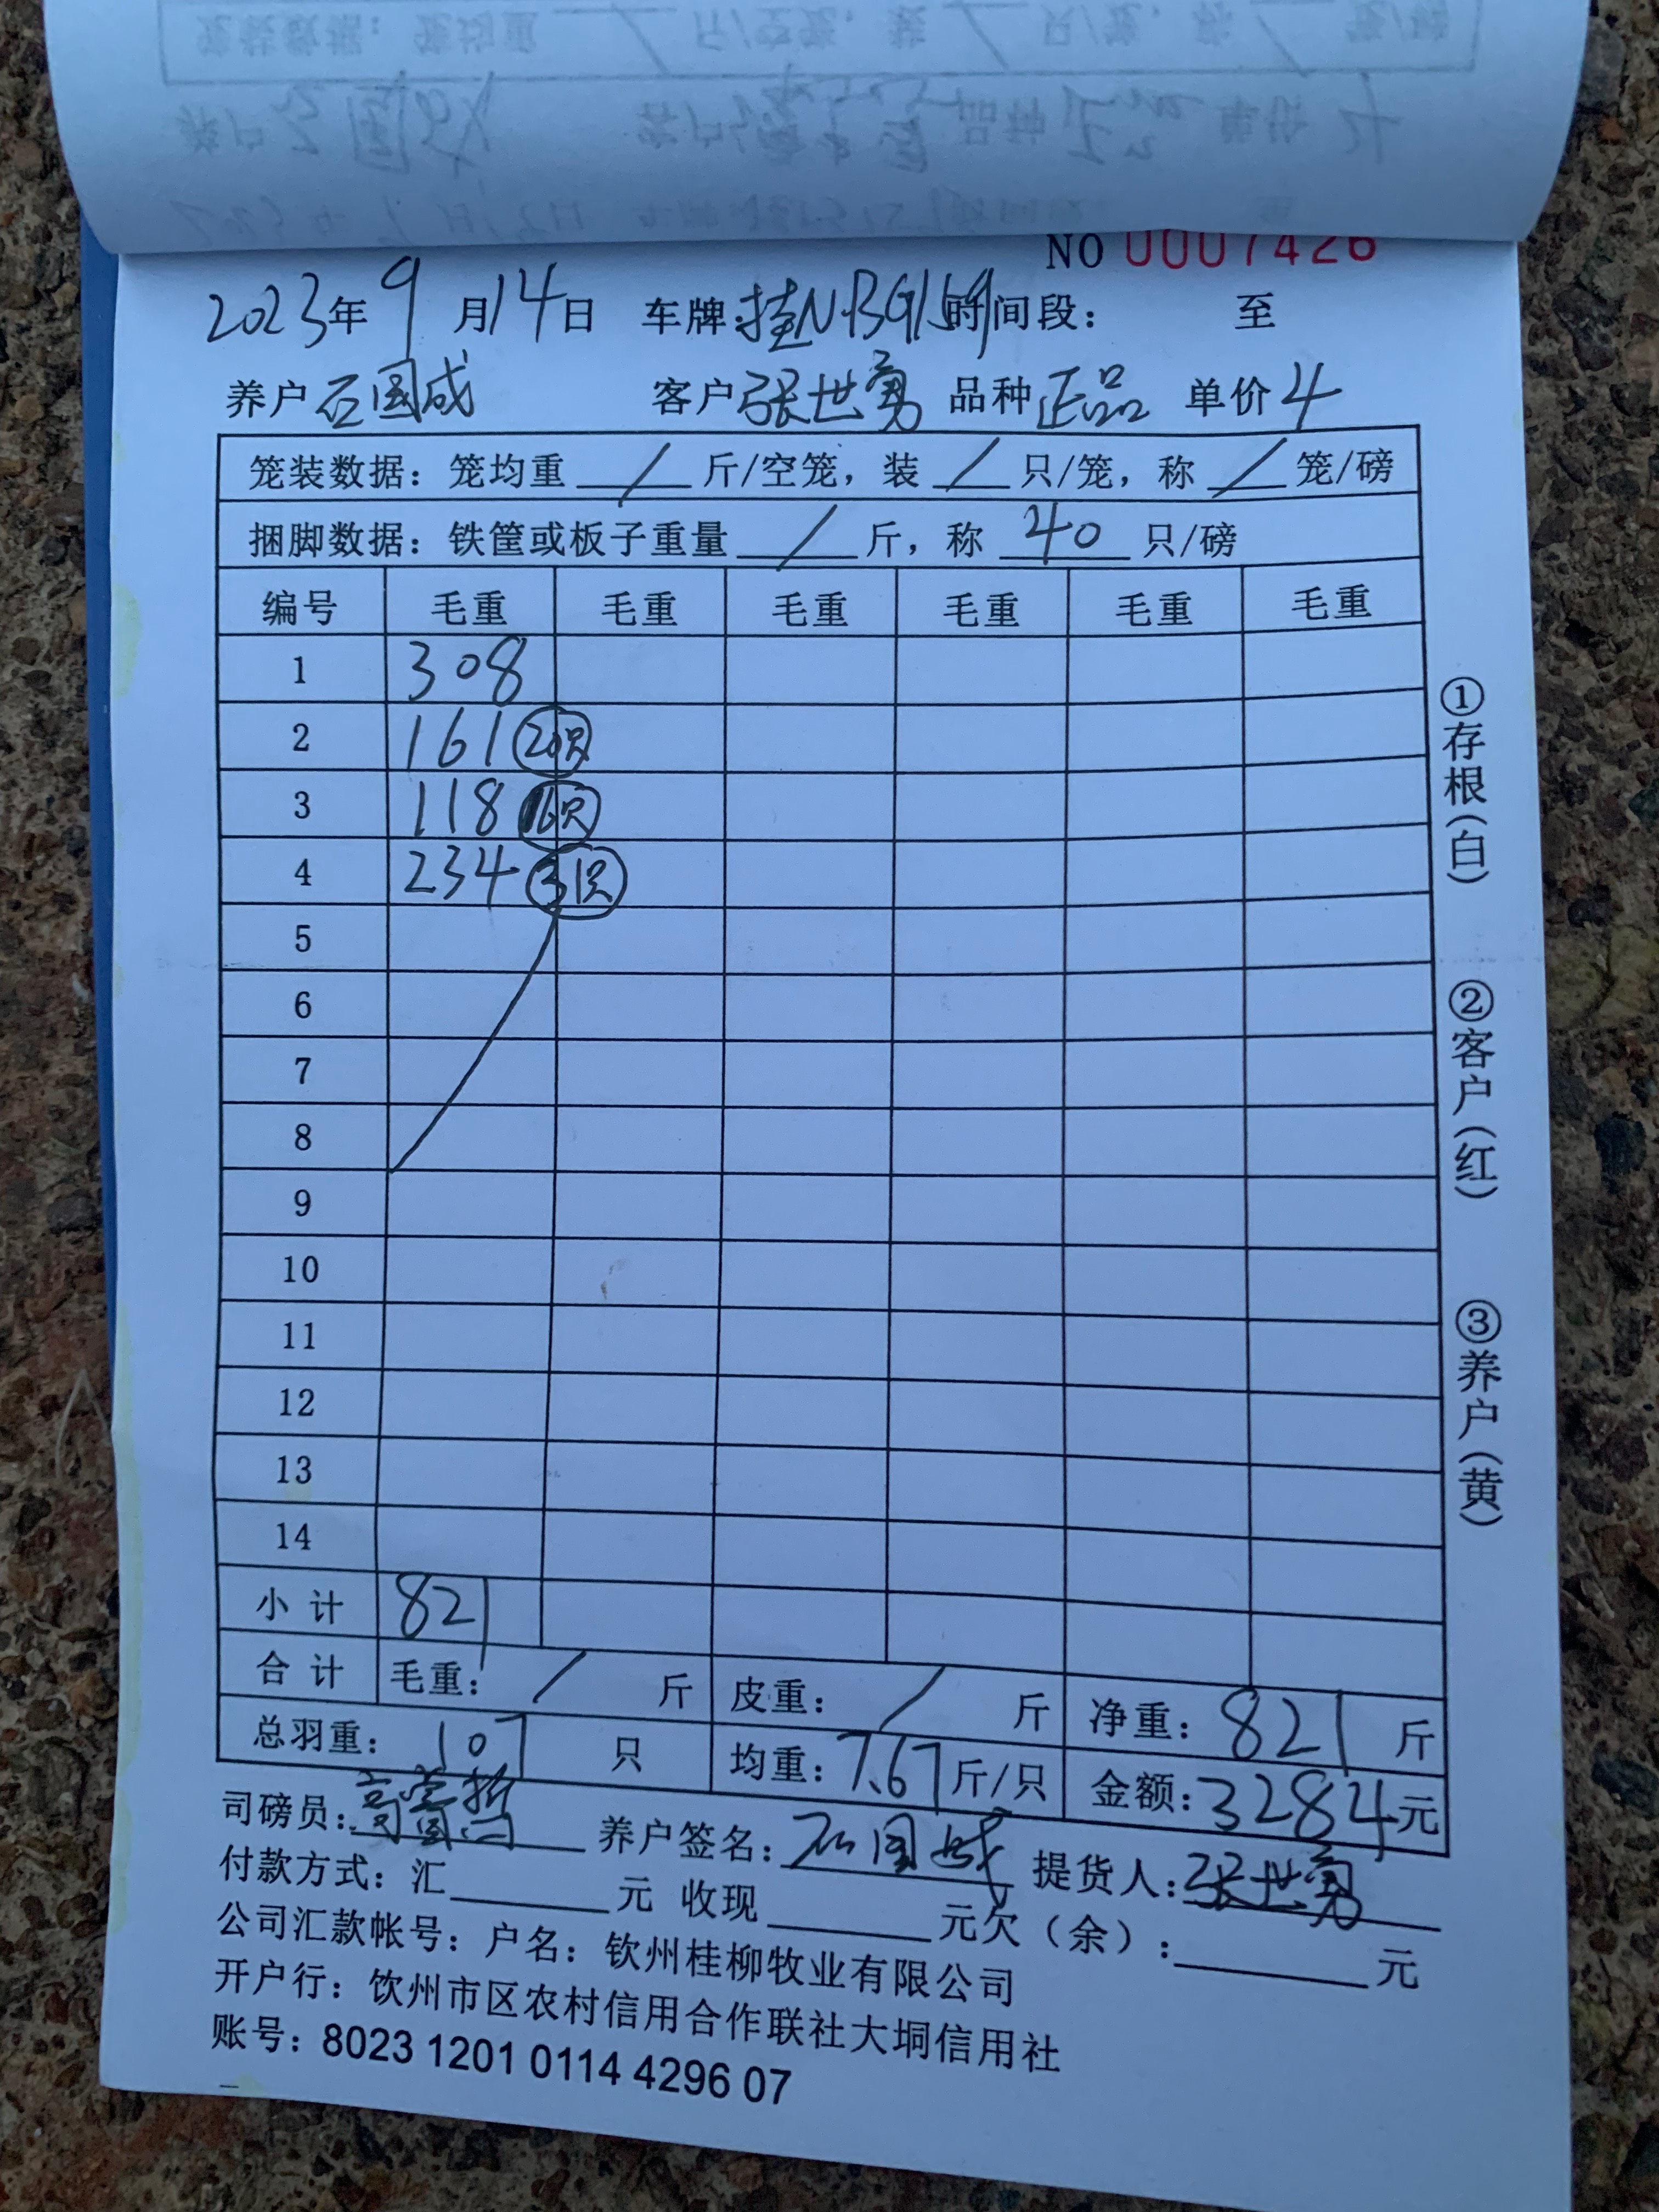 NO 0007426
2023年 9 月14日 车牌:桂N·BG159时间段: 至
养户 石国成 客户 张世勇 品种 正品 单价 4
笼装数据：笼均重 / 斤/空笼，装 / 只/笼，称 / 笼/磅
捆脚数据：铁筐或板子重量 / 斤，称 40 只/磅
编号 毛重 毛重 毛重 毛重 毛重 毛重
1 308
2 161 20只
3 118 16只
4 234 31只
5
6
7
8
9
10
11
12
13
14
小计 821
合计 毛重： / 斤 皮重： / 斤 净重：821 斤
总羽重： 107 只 均重：7.67斤/只 金额：3284元
司磅员： 养户签名：石国成 提货人：张世勇
付款方式：汇 元 收现 元欠（余）： 元
公司汇款帐号：户名：钦州桂柳牧业有限公司
开户行：钦州市区农村信用合作联社大垌信用社
账号：8023 1201 0114 4296 07
①存根（白）
②客户（红）
③养户（黄）